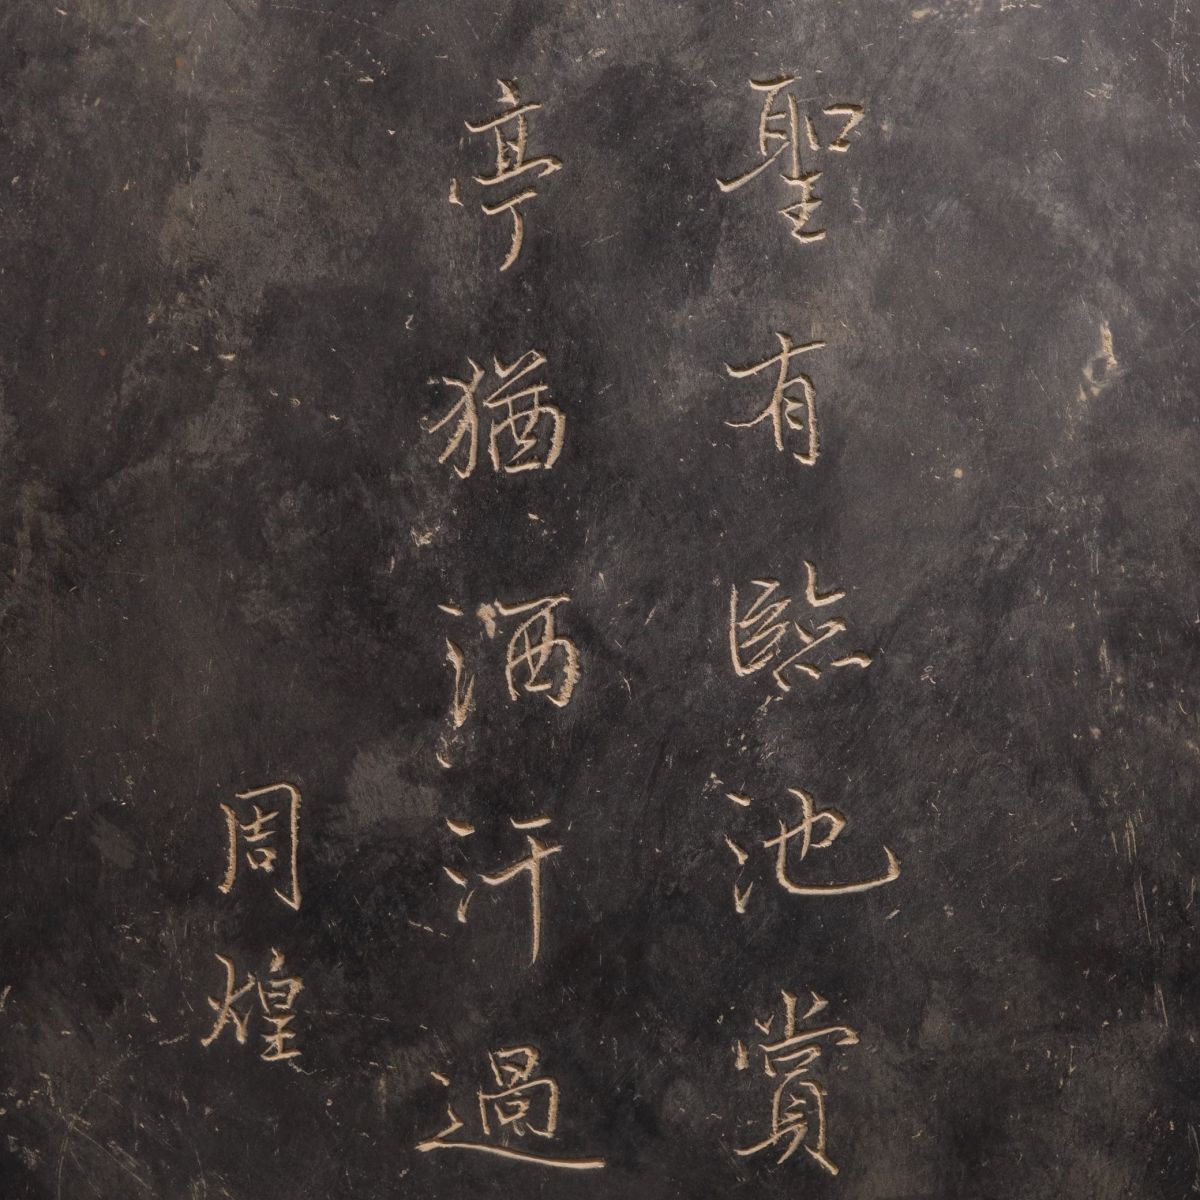 聖有臨池賞
亭猶酒汗過
周煌